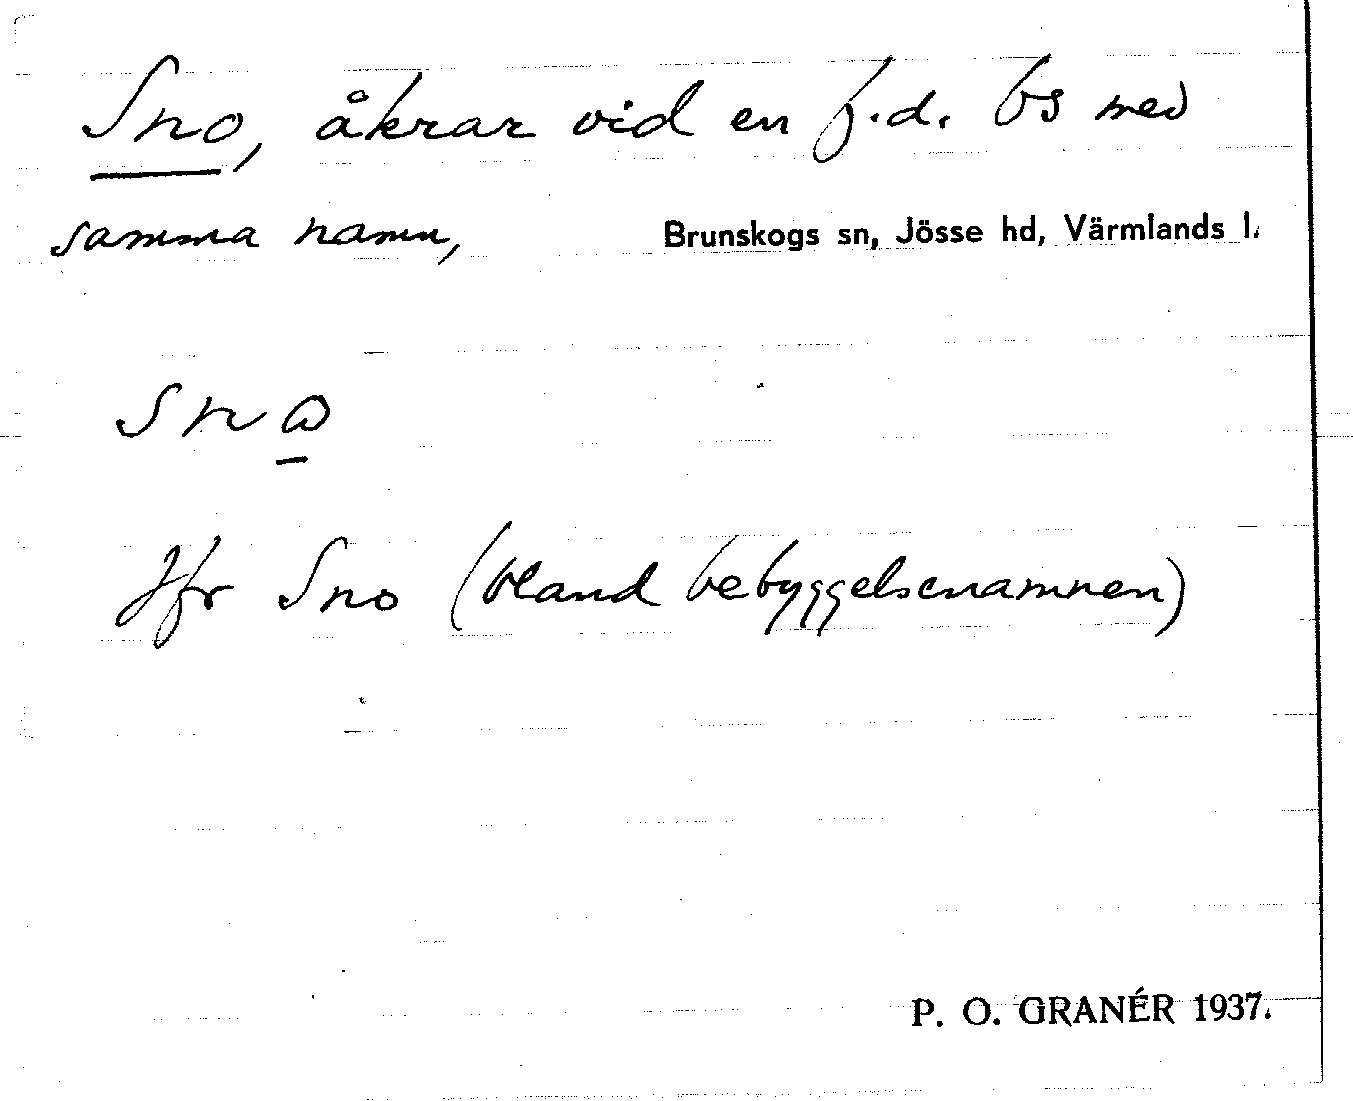 Sno, åkrar vid en f.d. bs med
samma namn, Brunskogs sn, Jösse hd, Värmlands l.
Jfr Sno (bland bebyggelsenamnen)
P. O. GRANÉR 1937.